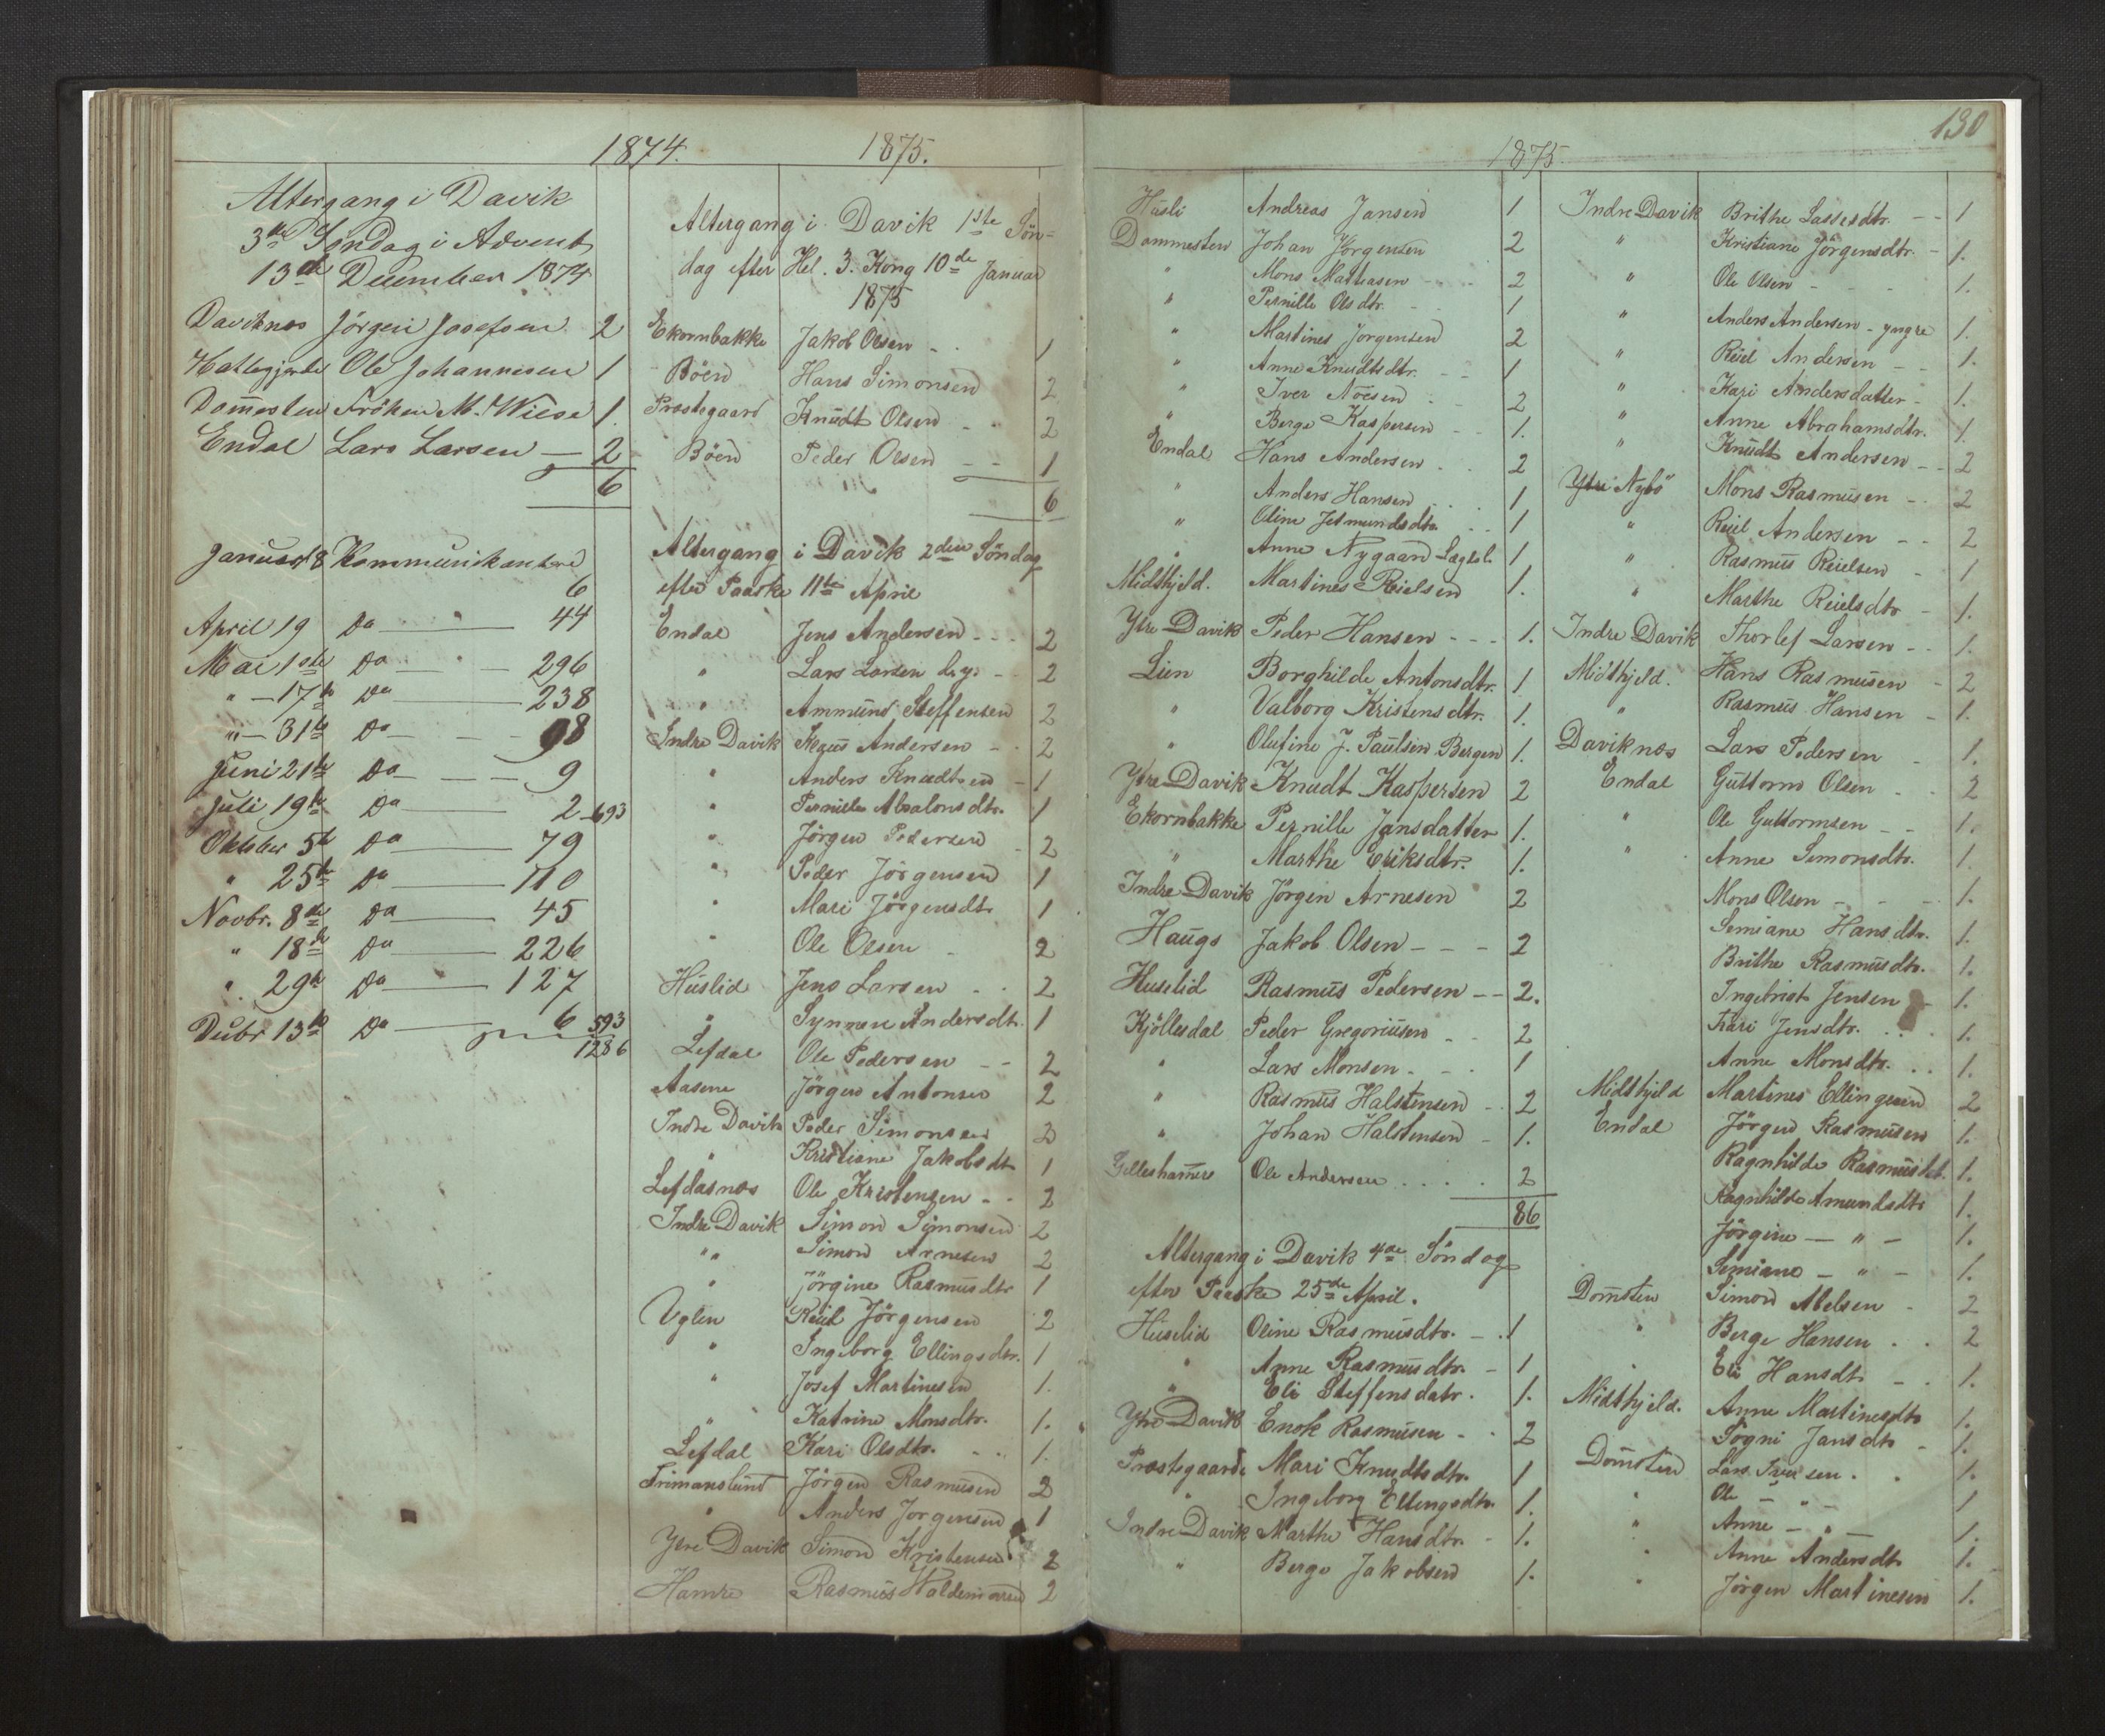 1874.
Altergang i Davik
3die Søndag i Advent
13de December 1874
Daviknes Jörgen Josefsen 2
Ole Johannesen 1
Domesten Fröken M. Wiese 1.
Endal Lars Larsen — 2
6
Januar 18 Kommunikantere
6
April 19 Do — " — 44
Mai 1ste Do — " — 296
" — 17de Do — 238
" — 31te Do — - - 98
Juni 21de Do — - - 9
Juli 19de Do — 2 693
Oktober 5te Do — 79
" 25de Do — 110
Novbr. 8de Do — 45
" 18de Do — 226
" 29de Do — " — 127
Decbr 13de Do — 6 593
1286
1875.
Altergang i Davik 1ste Søn=
dag efter Hel. 3. Kong 10de Januar
1875
Ekornbakke Jakob Olsen - . 1
Böen Hans Simonsen 2
Præstegaard Knudt Olsen - . 2
Böen Peder Olsen - - 1
6
Altergang i Davik 2den Söndag
efter Paaske 11te April
Endal Jens Andersen - - - 2
" Lars Larsen - - 2
" Ammund Steffensen 2
Indre Davik Andersen - . 2
" Anders Knudtsen - 1
" Pernille Absalonsdtr. 1
" Jörgen Pedersen - 2
" Peder Jörgensen 1
" Mari Jörgensdtr 1
" Ole Olsen - 2
Huslid Jens Larsen - . 2
" Synneve Andersdtr. 1
Lefdal Ole Pedersen - - 2
Aasene Jörgen Antonsen 2
Indre Davik Peder Simonsen 2
" Kristiane Jakobsdtr 1
Lefdasnes Ole Kristensen - . 2
Indre Davik Simon Symonsen 2
" " Simon Arnesen 2
" Jörgine Rasmusdtr 1
Uglen Reiel Jörgensen 2
" Ingeborg Ellingsdtr. 1
" Josef Martinesen 1.
" Katrine Monsdtr. 1.
Lefdal Kari Olsdtr. . . . 1.
Trimanslund Jörgen Rasmusen 2
" Anders Jorgensen 1
Ytre Davik Simon Kristensen 2
Hamre Rasmus Waldemarsen 2
130
1875.
Husli Andreas Jansen 1
Dommesten Johan Jörgensen 2
" Mons Mathiasen - - - 2
" Pernille Olsdtr. - . 1
" Martines Jorgensen 2
" Anne Knudtsdtr. - - 1
" Iver 2
" Berge Kaspersen - 1.
Endal Hans Andersen . . 2
" Anders Hansen . . 1
" Oline Jetmundsdtr. . . 1
" Anne Nygaard 1
Midthjeld. Martines Reielsen 1.
Ytre Davik Peder Hansen - - - 1.
Lien Borghilde Antonsdtr. 1
" Valborg Kristensdtr. 1.
" Olufine J. Paulsen Bergen 1.
Ytre Davik Knudt Kaspersen 2
Ekornbakke Pernille Jansdatter 1.
" Marthe Eriksdtr. 1.
Indre Davik Jörgen Arnesen 2
Haugs Jakob Olsen - - - 2
Huselid Rasmus Pedersen - - 2.
Kjöllesdal Peder Gregoriusen - . 2
" Lars Monsen. - - . 1
" Rasmus Halstensen - . 2
" Johan Halstensen - 1.
Gilleshamre Ole Andersen . . . . 2
86
Altergang i Davik 4de Söndag
efter Paaske 25de April.
Huselid Oline Rasmusdtr. - . 1
" Anne Rasmusdtr. - 1
" Eli Steffensdatr. . 1.
Ytre Davik Enok Rasmusen - . 2
Præstegaarde Mari Knudtsdtr. 1
" Ingeborg Ellingsdtr. 1.
Indre Davik Marthe Hansdtr. - 1.
" Berge Jakobsen 1.
Indre Davik Brithe Lassesdtr. - - 1
" Kristiane Jörgensdtr. - 1.
" Ole Olsen - - - 1.
" Anders Andersen - yngre 1.
" Reiel Andersen - - 1.
" Kari Andersdatter - 1.
" Anne Abrahamsdtr. 1.
" Knudt Andersen - - 2
Ytre Nybö Mons Rasmusen - . 2
" Reiel Andersen - - 2
" Rasmus Reielsen - 1
" Marthe Reielsdtr - 1.
Indre Davik Thorlef Larsen - - 1.
Midthjeld. Hans Rasmusen - 2
" Rasmus Hansen - 1.
Daviknes Lars Pedersen - 1.
Endal Guttorm Olsen . . 2
" Ole Guttormsen - - 1.
" Anne Simonsdtr. 1.
Mons Olsen - - - 1.
Simiane Hansdtr. 1.
Brithe Rasmusdtr. 1.
Ingebrigt Jensen - 1.
Kari Jensdtr. . . . 1.
Anne Monsdtr. . . 1.
Midthjeld Martines Ellingsen 2
Endal Jörgen Rasmusen 1.
Ragnhilde Rasmusdtr. 1.
Ragnhilde Amundsdtr 1.
Jörgine — " — 1.
Simiane — " — 1.
Domsten Simon Abelsen - 2
" Berge Hansen . . 2
" Eli Hansdtr - . 1.
Midthjeld. Anne Martinesdtr 1.
Sögni Jansdtr - 1.
Domsten Lars Iversen . . 1.
" Ole — " — 1
" Anne — " — 1.
" Anne Andersdtr 1.
" Jörgen Martinesen 1.